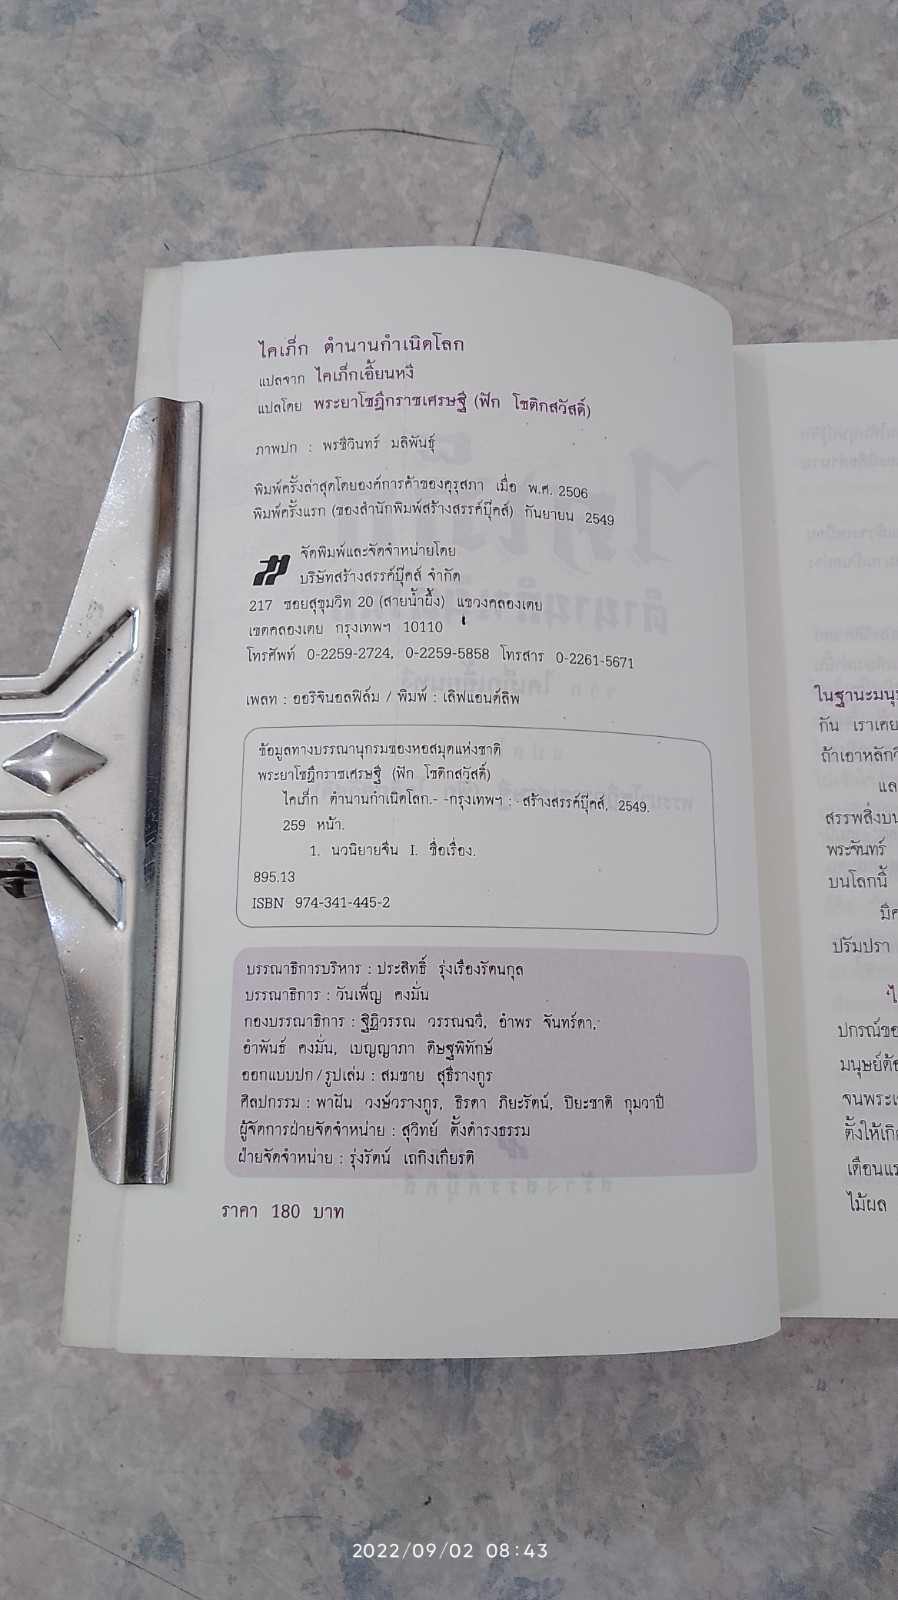 ไคเภ็ก ตำนานกำเนิดโลก
แปลจาก ไคเภ็กเอี้ยนหงี
แปลโดย พระยาโชฎึกราชเศรษฐี (ฟัก โชติกสวัสดิ์)
ภาพปก : พรชีวินทร์ มลิพันธุ์
พิมพ์ครั้งล่าสุดโดยองค์การค้าของคุรุสภา เมื่อ พ.ศ. 2506
พิมพ์ครั้งแรก (ของสำนักพิมพ์สร้างสรรค์บุ๊คส์) กันยายน 2549
จัดพิมพ์และจัดจำหน่ายโดย
บริษัทสร้างสรรค์บุ๊คส์ จำกัด
217 ซอยสุขุมวิท 20 (สายน้ำผึ้ง) แขวงคลองเตย
เขตคลองเตย กรุงเทพฯ 10110
โทรศัพท์ 0-2259-2724, 0-2259-5858 โทรสาร 0-2261-5671
เพลท : ออริจินอลฟิล์ม / พิมพ์ : เลิฟแอนด์ลิพ
ข้อมูลทางบรรณานุกรมของหอสมุดแห่งชาติ
พระยาโชฎึกราชเศรษฐี (ฟัก โชติกสวัสดิ์)
ไคเภ็ก ตำนานกำเนิดโลก.- -กรุงเทพฯ : สร้างสรรค์บุ๊คส์, 2549.
259 หน้า.
1. นวนิยายจีน I. ชื่อเรื่อง.
895.13
ISBN 974-341-445-2
บรรณาธิการบริหาร : ประสิทธิ์ รุ่งเรืองรัตนกุล
บรรณาธิการ : วันเพ็ญ คงมั่น
กองบรรณาธิการ : ฐิฏิวรรณ วรรณฉวี, อำพร จันทร์ดา,
อำพันธ์ คงมั่น, เบญญาภา ดิษฐพิทักษ์
ออกแบบปก/รูปเล่ม : สมชาย สุธีรางกูร
ศิลปกรรม : พาฝัน วงษ์วรางกูร, ธิรดา ภิยะรัตน์, ปิยะชาติ กุมวาปี
ผู้จัดการฝ่ายจัดจำหน่าย : สุวิทย์ ตั้งดำรงธรรม
ฝ่ายจัดจำหน่าย : รุ่งรัตน์ เถกิงเกียรติ
ราคา 180 บาท
ในฐานะมนุ
กัน เราเคย
ถ้าเอาหลัก
แล
สรรพสิ่งบน
พระจันทร์
บนโลกนี้
มีค
ปรัมปรา
ปกรณ์ขอ
มนุษย์ต้อ
จนพระเ
ตั้งให้เกิ
เดือนแร
ไม้ผล
2022/09/02 08:43